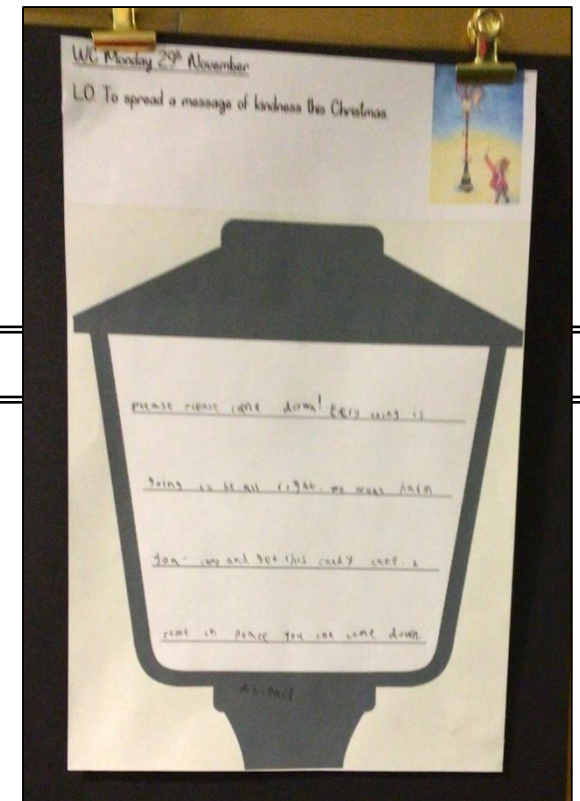 WC Monday 29th November
LO. To spread a message of kindness this Christmas.
please please come down! Every thing is
going to be all right. we wont harm
you. and get this candy cane. I
come in peace you can come down.
Abigail